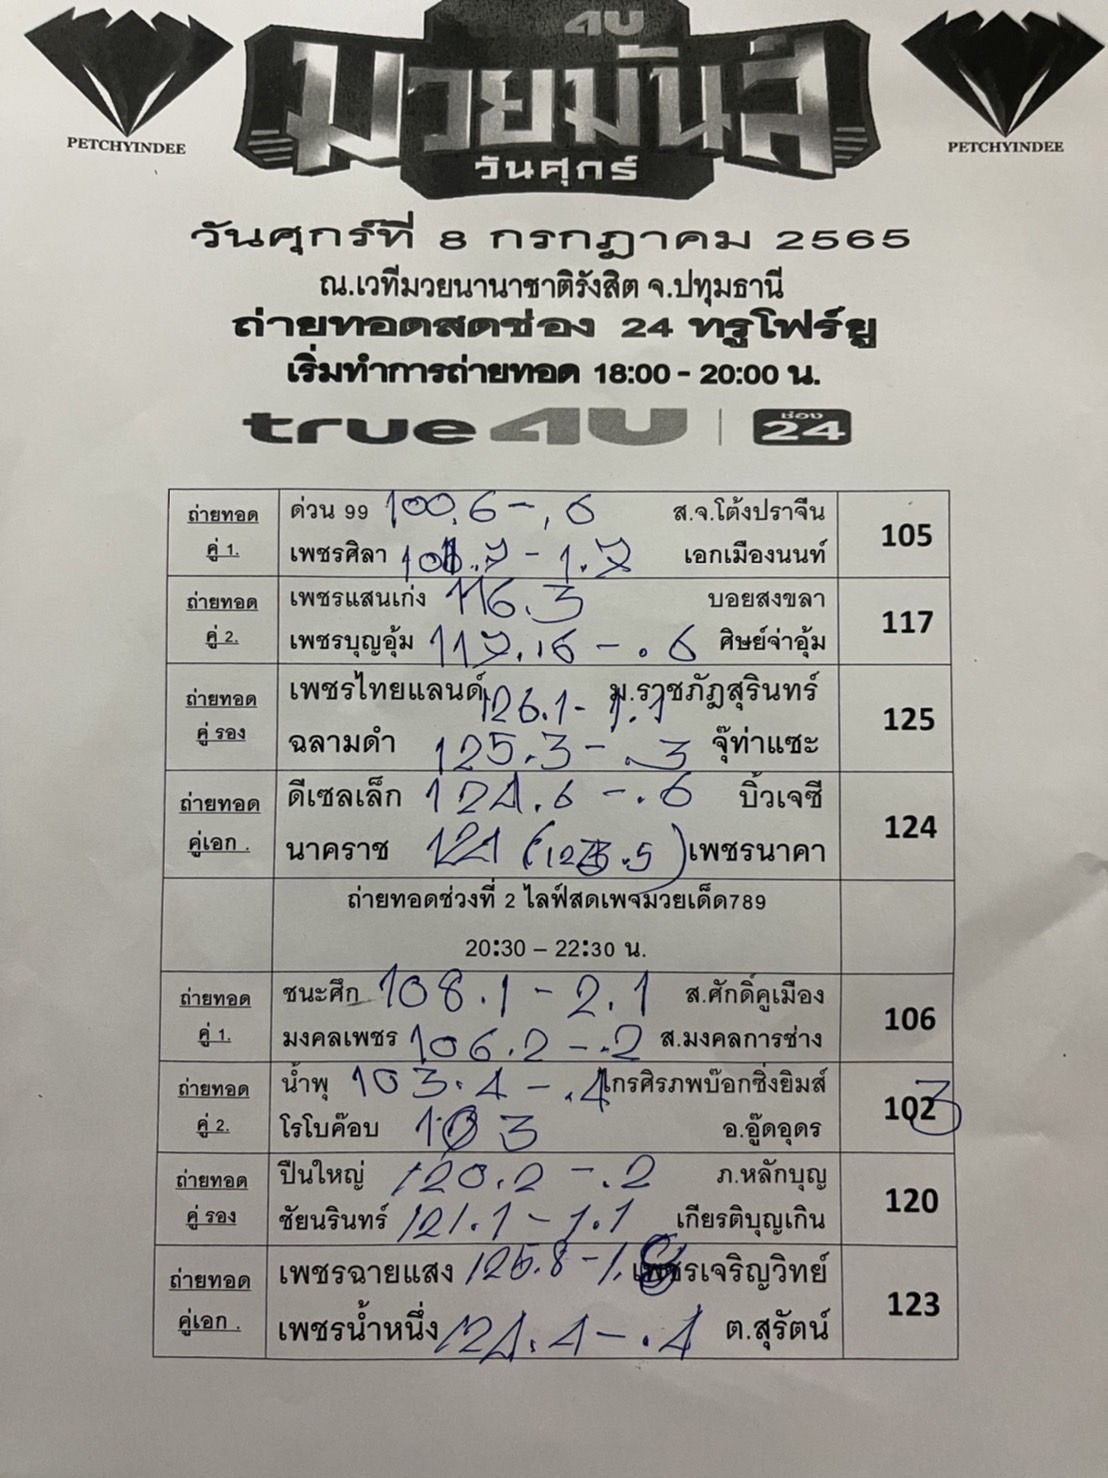 4U
มวยมันส์
วันศุกร์
PETCHYINDEE
PETCHYINDEE
วันศุกร์ที่ 8 กรกฎาคม 2565
ณ.เวทีมวยนานาชาติรังสิต จ.ปทุมธานี
ถ่ายทอดสดช่อง 24 ทรูโฟร์ยู
เริ่มทำการถ่ายทอด 18:00 - 20:00 น.
true4U | ช่อง 24
ถ่ายทอด คู่ 1. 105
ด่วน 99 100.6 - .6 ส.จ.โต้งปราจีน
เพชรศิลา .7 - 1.7 เอกเมืองนนท์
ถ่ายทอด คู่ 2. 117
เพชรแสนเก่ง 116.3 บอยสงขลา
เพชรบุญอุ้ม 117.16 - .6 ศิษย์จ่าอุ้ม
ถ่ายทอด คู่ รอง 125
เพชรไทยแลนด์ 126.1 - 1.1 ม.ราชภัฎสุรินทร์
ฉลามดำ 125.3 - .3 จุ๊ท่าแซะ
ถ่ายทอด คู่เอก . 124
ดีเซลเล็ก 124.6 - .6 บิ้วเจซี
นาคราช 124 เพชรนาคา
ถ่ายทอดช่วงที่ 2 ไลฟ์สดเพจมวยเด็ด789
20:30 – 22:30 น.
ถ่ายทอด คู่ 1. 106
ชนะศึก 108.1 - 2.1 ส.ศักดิ์คูเมือง
มงคลเพชร 106.2 - .2 ส.มงคลการช่าง
ถ่ายทอด คู่ 2. 102 3
น้ำพุ 103.4 - .4 ไกรศิรภพบ๊อกซิ่งยิมส์
โรโบค๊อบ 103 อ.อู๊ดอุดร
ถ่ายทอด คู่ รอง 120
ปืนใหญ่ 120.2 - .2 ภ.หลักบุญ
ชัยนรินทร์ 121.1 - 1.1 เกียรติบุญเกิน
ถ่ายทอด คู่เอก . 123
เพชรฉายแสง 125.8 - 1.8 เพชรเจริญวิทย์
เพชรน้ำหนึ่ง 124.4 - .4 ต.สุรัตน์